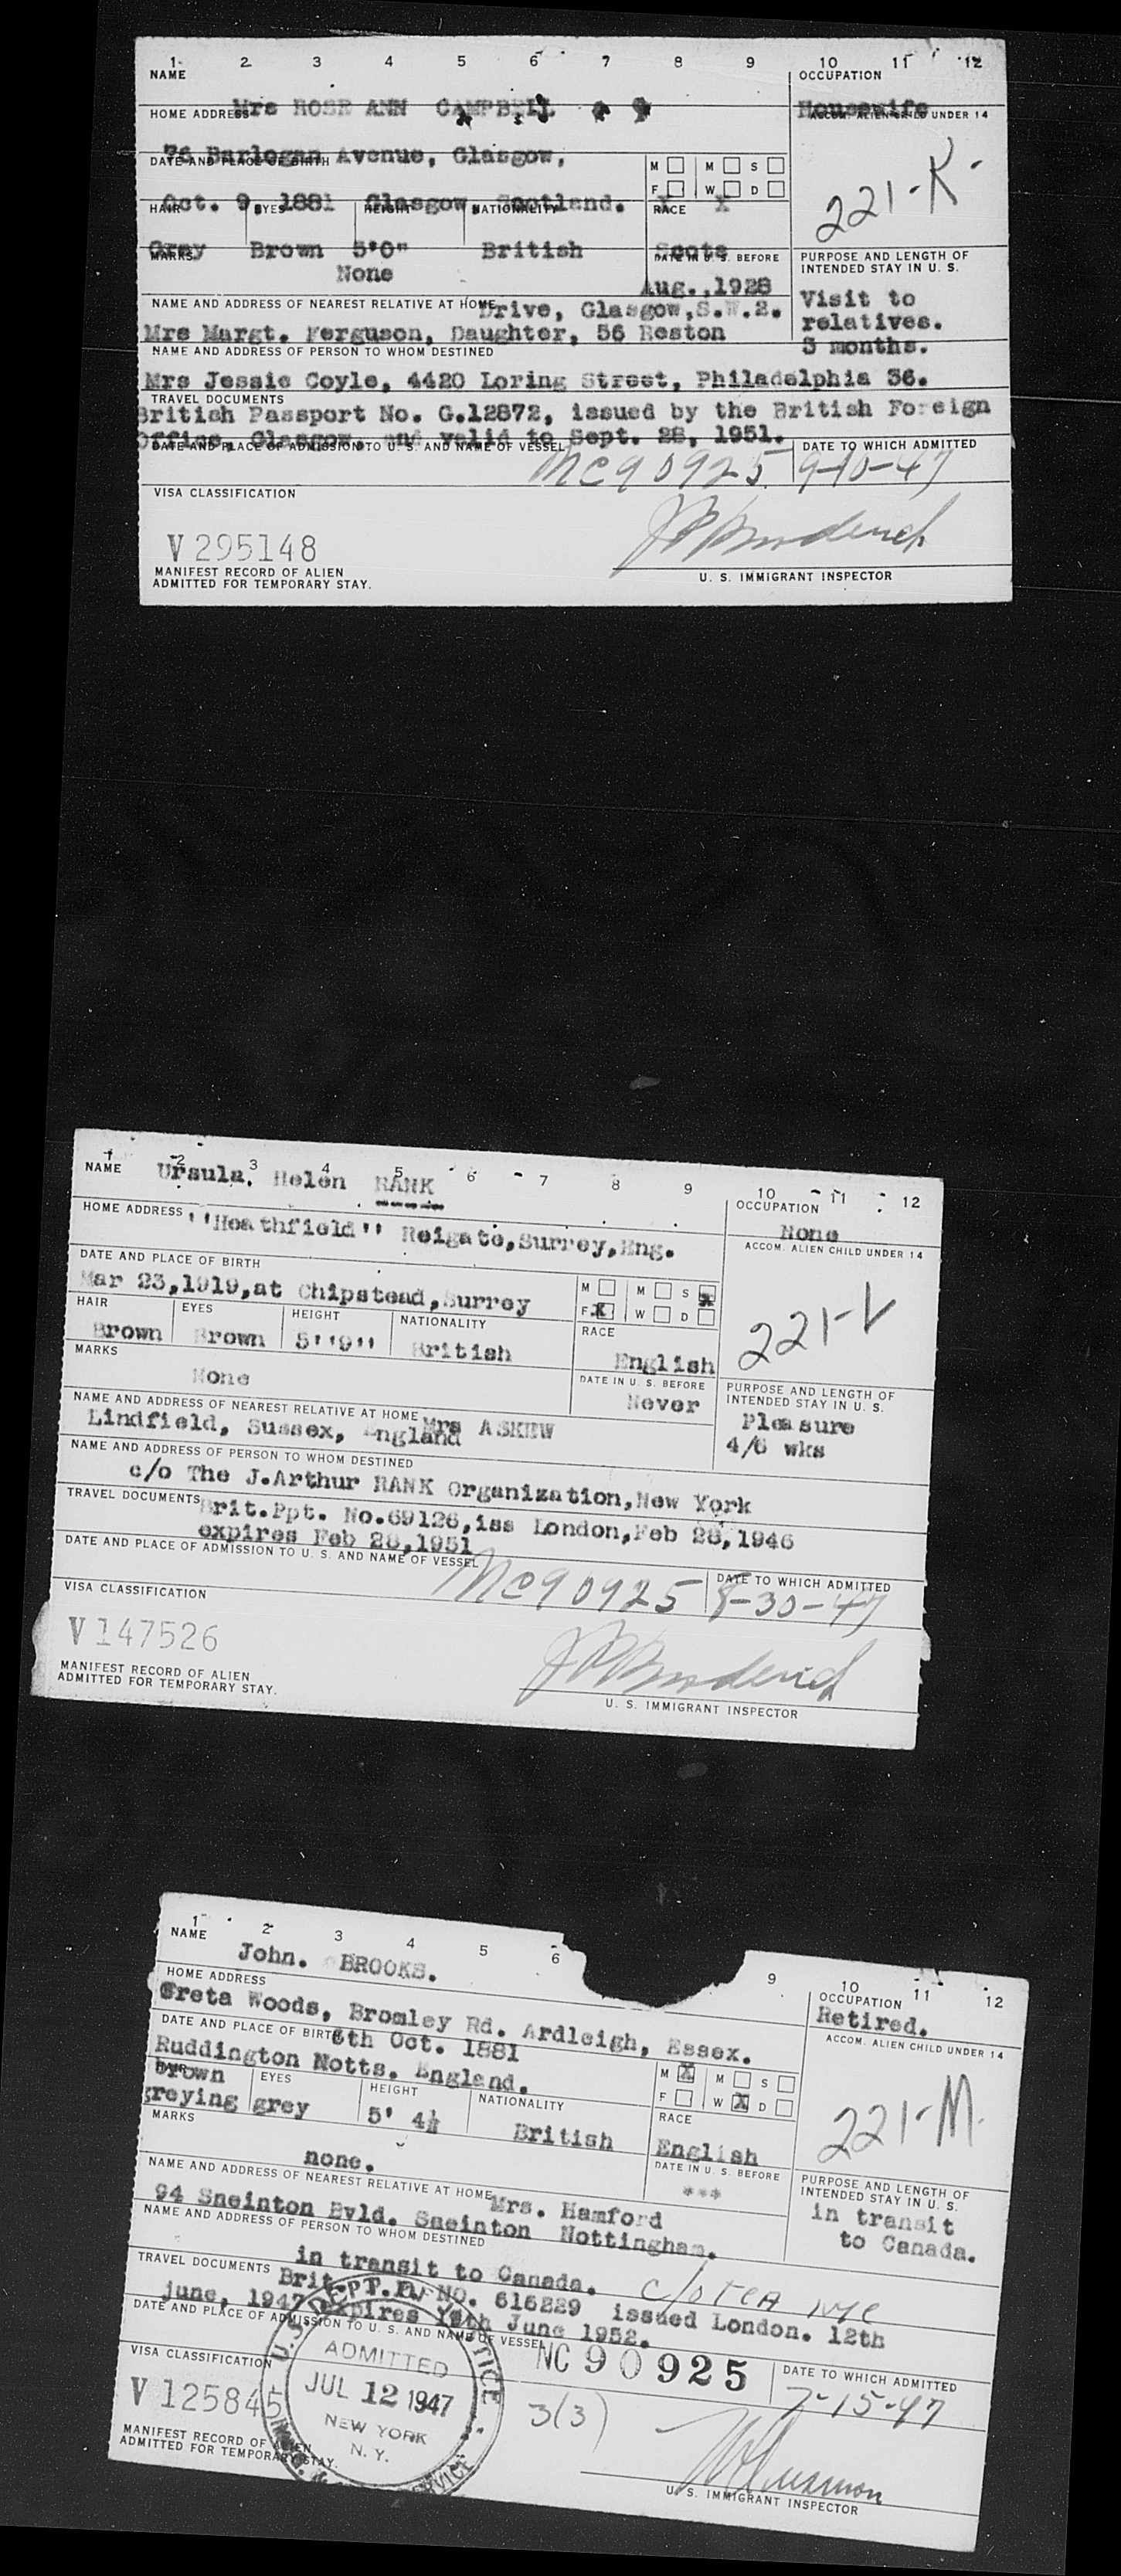 1 2 3 4 5 6 7 8 9 10 11 12
NAME OCCUPATION
Mrs ROSE ANN CAMPBELL Housewife
HOME ADDRESS ACCOM. ALIEN CHILD UNDER 14
76 Barlogan Avenue, Glasgow,
DATE AND PLACE OF BIRTH M M S
F W D
Oct. 9, 1881 Glasgow, Scotland. X X
221-K-
HAIR EYES HEIGHT NATIONALITY RACE
Gray Brown 5'0" British Scots
MARKS DATE IN U. S. BEFORE PURPOSE AND LENGTH OF INTENDED STAY IN U. S.
None Aug.,1928
Visit to
relatives.
3 months.
NAME AND ADDRESS OF NEAREST RELATIVE AT HOME Drive, Glasgow,S.W.2.
Mrs Margt. Ferguson, Daughter, 56 Reston
NAME AND ADDRESS OF PERSON TO WHOM DESTINED
Mrs Jessie Coyle, 4420 Loring Street, Philadelphia 36.
TRAVEL DOCUMENTS
British Passport No. G.12872, issued by the British Foreign
Office, Glasgow, and valid to Sept. 28, 1951.
DATE AND PLACE OF ADMISSION TO U. S. AND NAME OF VESSEL DATE TO WHICH ADMITTED
NC90925 9-10-47
VISA CLASSIFICATION
V295148
MANIFEST RECORD OF ALIEN
ADMITTED FOR TEMPORARY STAY.
U. S. IMMIGRANT INSPECTOR
1 2 3 4 5 6 7 8 9 10 11 12
NAME Ursula. Helen RANK OCCUPATION
None
HOME ADDRESS ''Heathfield'' Reigate,Surrey,Eng. ACCOM. ALIEN CHILD UNDER 14
DATE AND PLACE OF BIRTH
Mar 23,1919,at Chipstead,Surrey M M S X
F X W D
221-L
HAIR EYES HEIGHT NATIONALITY RACE
Brown Brown 5''9'' British English
MARKS DATE IN U. S. BEFORE PURPOSE AND LENGTH OF INTENDED STAY IN U. S.
None Never
Pleasure
4/6 wks
NAME AND ADDRESS OF NEAREST RELATIVE AT HOME Mrs ASKEW
Lindfield, Sussex, England
NAME AND ADDRESS OF PERSON TO WHOM DESTINED
c/o The J.Arthur RANK Organization,New York
TRAVEL DOCUMENTS Brit.Ppt. No.69126,iss London,Feb 28,1946
expires Feb 28,1951
DATE AND PLACE OF ADMISSION TO U. S. AND NAME OF VESSEL DATE TO WHICH ADMITTED
NC90925 8-30-47
VISA CLASSIFICATION
V147526
MANIFEST RECORD OF ALIEN
ADMITTED FOR TEMPORARY STAY.
U. S. IMMIGRANT INSPECTOR
1 2 3 4 5 6 9 10 11 12
NAME OCCUPATION
John. BROOKS. Retired.
HOME ADDRESS ACCOM. ALIEN CHILD UNDER 14
Greta Woods, Bromley Rd. Ardleigh, Essex.
DATE AND PLACE OF BIRTH 6th Oct. 1881
Ruddington Notts. England. M X M S
F W X D
221-M.
HAIR EYES HEIGHT NATIONALITY RACE
Brown
greying grey 5' 4½ British English
MARKS DATE IN U. S. BEFORE PURPOSE AND LENGTH OF INTENDED STAY IN U. S.
none. ***
in transit
to Canada.
NAME AND ADDRESS OF NEAREST RELATIVE AT HOME Mrs. Hamford
94 Sneinton Bvld. Sneinton Nottingham.
NAME AND ADDRESS OF PERSON TO WHOM DESTINED
in transit to Canada. c/o TCA NYC
TRAVEL DOCUMENTS Brit. NO. 616229 issued London. 12th
june, 1947 expires June 1952.
DATE AND PLACE OF ADMISSION TO U. S. AND NAME OF VESSEL DATE TO WHICH ADMITTED
NC 90925 7-15-47
VISA CLASSIFICATION
V 125845
ADMITTED
JUL 12 1947
NEW YORK
N. Y.
3(3)
MANIFEST RECORD OF ALIEN
ADMITTED FOR TEMPORARY STAY.
U. S. IMMIGRANT INSPECTOR